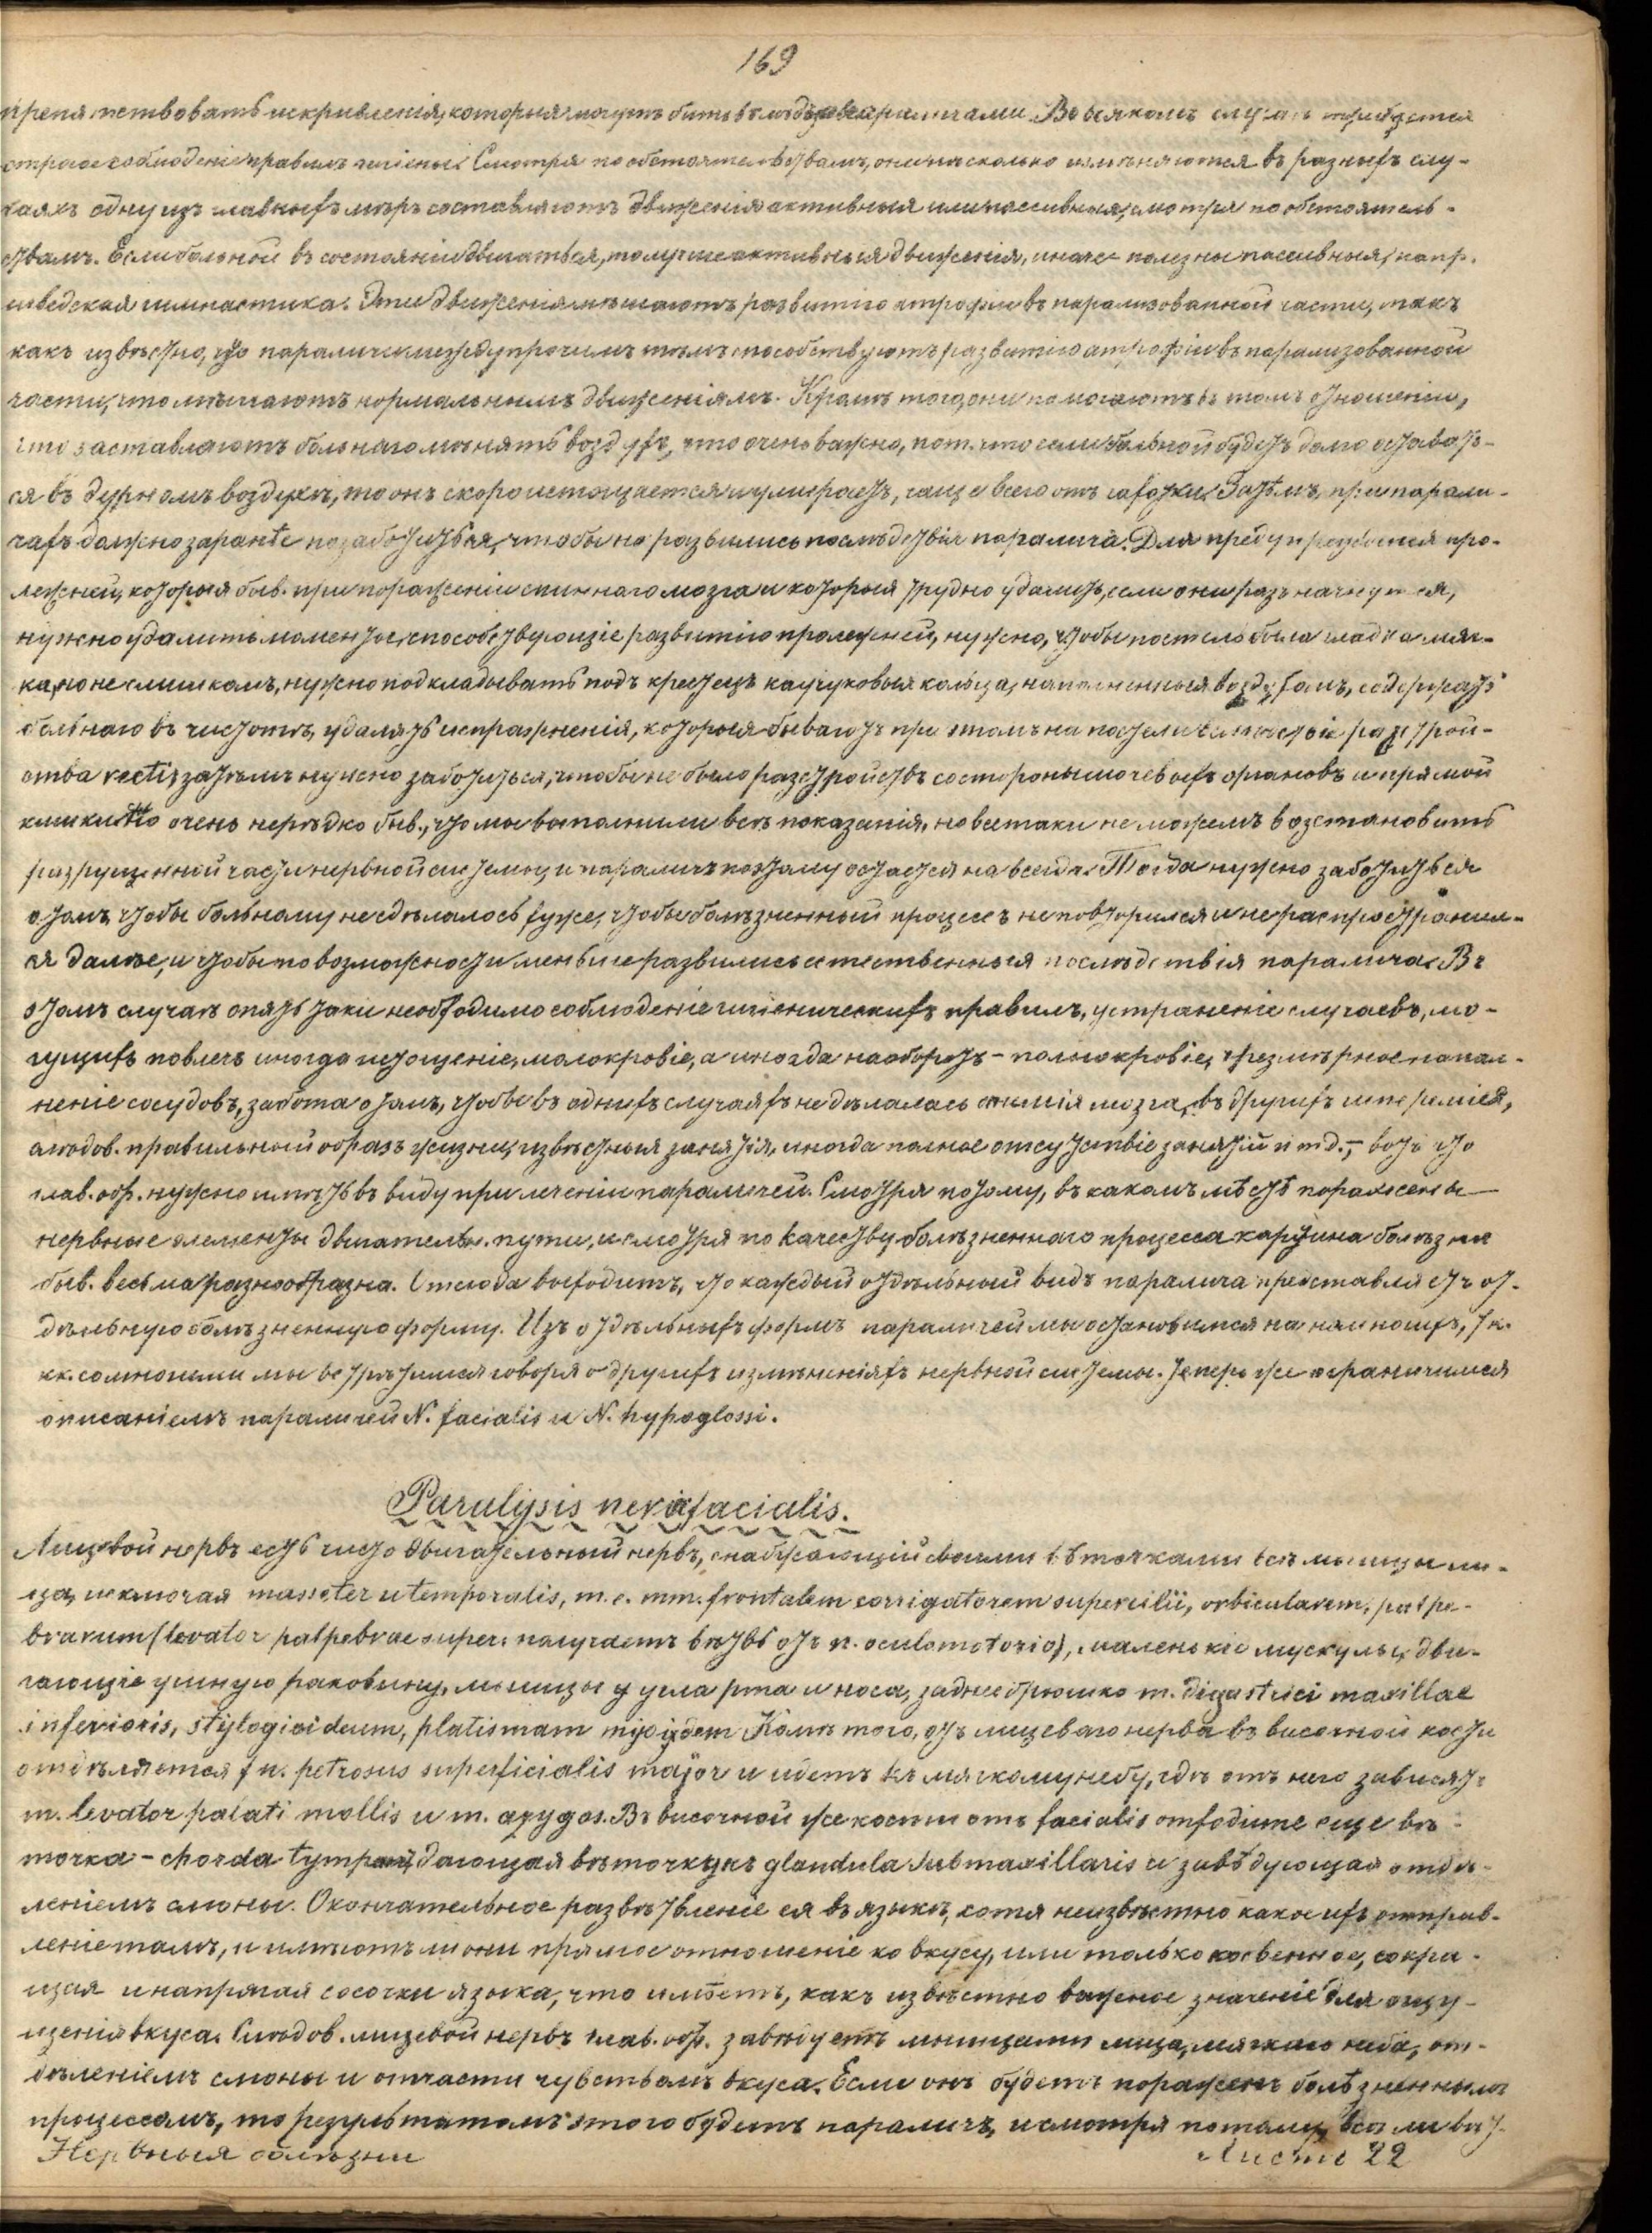 169
препятствовать искривленія, которыя могутъ быть вслѣдъ за параличами. Во всякомъ случаѣ требуется
строгое соблюденіе правилъ гигіены. Смотря по обстоятельствамъ, они нѣсколько измѣняются въ разныхъ слу-
чаяхъ одну изъ главныхъ мѣръ составляютъ движенія активныя или пассивныя, смотря по обстоятель-
ствамъ. Если больной въ состояніи двигаться, то лучше активныя движенія, иначе полезны пассивныя, напр.
шведская гимнастика. Эти движенія мѣшаютъ развитію атрофіи въ парализованной части, такъ
какъ извѣстно, что параличи между прочимъ тѣмъ способствуютъ развитію атрофіи въ парализованной
части, что мѣшаютъ нормальнымъ движеніямъ. Кромѣ того, они помогаютъ въ томъ отношеніи,
что заставляютъ больнаго мѣнять воздухъ, что очень важно, пот. что если больной будетъ долго оставать-
ся въ дурномъ воздухѣ, то онъ скоро истощается и умираетъ, чаще всего отъ чахотки. Затѣмъ, при парали-
чахъ должно заранѣе позаботиться, чтобы не развились послѣдствія паралича. Для предупрежденія про-
лежней, которыя быв. при пораженіи спиннаго мозга и которыя трудно удалить, если они разъ начнутся,
нужно удалить моменты, способствующіе развитію пролежней, нужно, чтобы постель была гладка мяг-
ка, но не слишкомъ, нужно подкладывать подъ крестецъ каучуковыя кольца, наполненныя воздухомъ, содержать
больнаго въ чистотѣ, удалять испражненія, которыя бываютъ при этомъ на постели вслѣдствіе разстрой-
ства recti, затѣмъ нужно заботиться, чтобы не было разстройствъ со стороны мочевыхъ органовъ и прямой
кишки. Но очень нерѣдко быв., что мы выполнили всѣ показанія, но всетаки не можемъ возстановить
разрушенной части нервной системы, и параличъ поэтому остается навсегда. Тогда нужно заботиться
о томъ, чтобы больному не сдѣлалось хуже, чтобы болѣзненный процессъ не повторился и не распространил-
ся далѣе, и чтобы по возможности меньше развились естественныя послѣдствія паралича. Въ
этомъ случаѣ опять таки необходимо соблюденіе гигіеническихъ правилъ, устраненіе случаевъ, мо-
гущихъ повлечь иногда истощеніе, малокровіе, а иногда наоборотъ – полнокровіе, чрезмѣрное напол-
неніе сосудовъ, забота о томъ, чтобы въ однихъ случаяхъ не дѣлалась анемія мозга, въ другихъ гиперемія,
слѣдов. правильный образъ жизни, извѣстныя занятія, иногда полное отсутствіе занятій и т.д. – вотъ что
глав. обр. нужно имѣть въ виду при леченіи параличей. Смотря потому, въ какомъ мѣстѣ поражены
нервные элементы двигательн. пути, и смотря по качеству болѣзненнаго процесса картина болѣзни
быв. весьма разнообразна. Отсюда выходитъ, что каждый отдѣльный видъ паралича представляетъ от-
дѣльную болѣзненную форму. Изъ отдѣльныхъ формъ параличей мы остановимся на немногихъ, т.к.
кк. со многими мы встрѣтимся говоря о другихъ измѣненіяхъ нервной системы. Теперь же ограничимся
описаніемъ параличей N. facialis и N. hypoglossi.
Paralysis nervi facialis.
Лицевой нервъ есть чисто двигательный нервъ, снабжающій своими вѣточками всѣ мышцы ли-
ца, исключая masseter и temporalis, т.е. mm. frontalem corrigatorem supercilii, orbicularem, palpe-
brarum (levator palpebrae super. получаетъ вѣтвь отъ n. oculomotorio), маленькіе мускулы, дви-
гающіе ушную раковину, мышцы у угла рта и носа, заднее брюшко m. digastrici maxillae
inferioris, stylogioideum, platismam myoidem. Кромѣ того, отъ лицеваго нерва въ височной кости
отдѣляется n. petrosus superficialis major и идетъ къ мягкому небу, гдѣ отъ него зависятъ
m. levator palati mollis и m. azygos. Въ височной же кости отъ facialis отходитъ еще вѣ-
точка – chorda tympani, дающая вѣточку къ glandula submaxillaris и завѣдующая отдѣ-
леніемъ слюны. Окончательное развѣтвленіе ея въ языкѣ, хотя неизвѣстно какое ихъ отправ-
леніе тамъ, и имѣютъ ли они прямое отношеніе ко вкусу, или только косвенное, сокра-
щая и напрягая сосочки языка, что имѣетъ, какъ извѣстно важное значеніе для ощу-
щенія вкуса. Слѣдов. лицевой нервъ глав. обр. завѣдуетъ мышцами лица, мягкаго неба, от-
дѣленіемъ слюны и отчасти чувствомъ вкуса. Если онъ будетъ пораженъ болѣзненнымъ
процессомъ, то результатомъ этого будетъ параличъ, и смотря потому, всѣ ли вѣт-
Нервныя болѣзни
Листъ 22